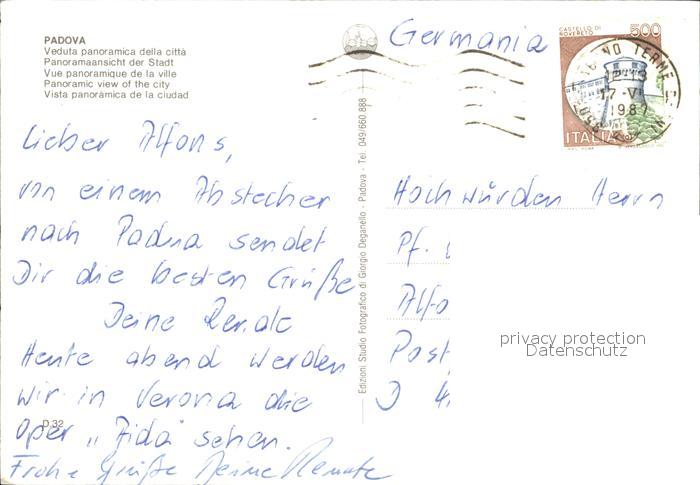 PADOVA
Veduta panoramica della città
Panoramaansicht der Stadt
Vue panoramique de la ville
Panoramic view of the city
Vista panoràmica de la ciudad
Lieber Alfons,
von einem Abstecher
nach Padua sendet
Dir die besten Grüße
Deine Renate
Heute abend werden
wir in Verona die
Oper „Aida" sehen.
Frohe Grüße Deine Renate
D 32
Edizioni Studio Fotografico di Giorgio Deganello - Padova - Tel. 049/660.888
Germania
CASTELLO DI
ROVERETO
500
ITALIA
TERME
17 · VI
1987
Hochwürden Herrn
Pf.
Alfo
Post
D 4
privacy protection
Datenschutz